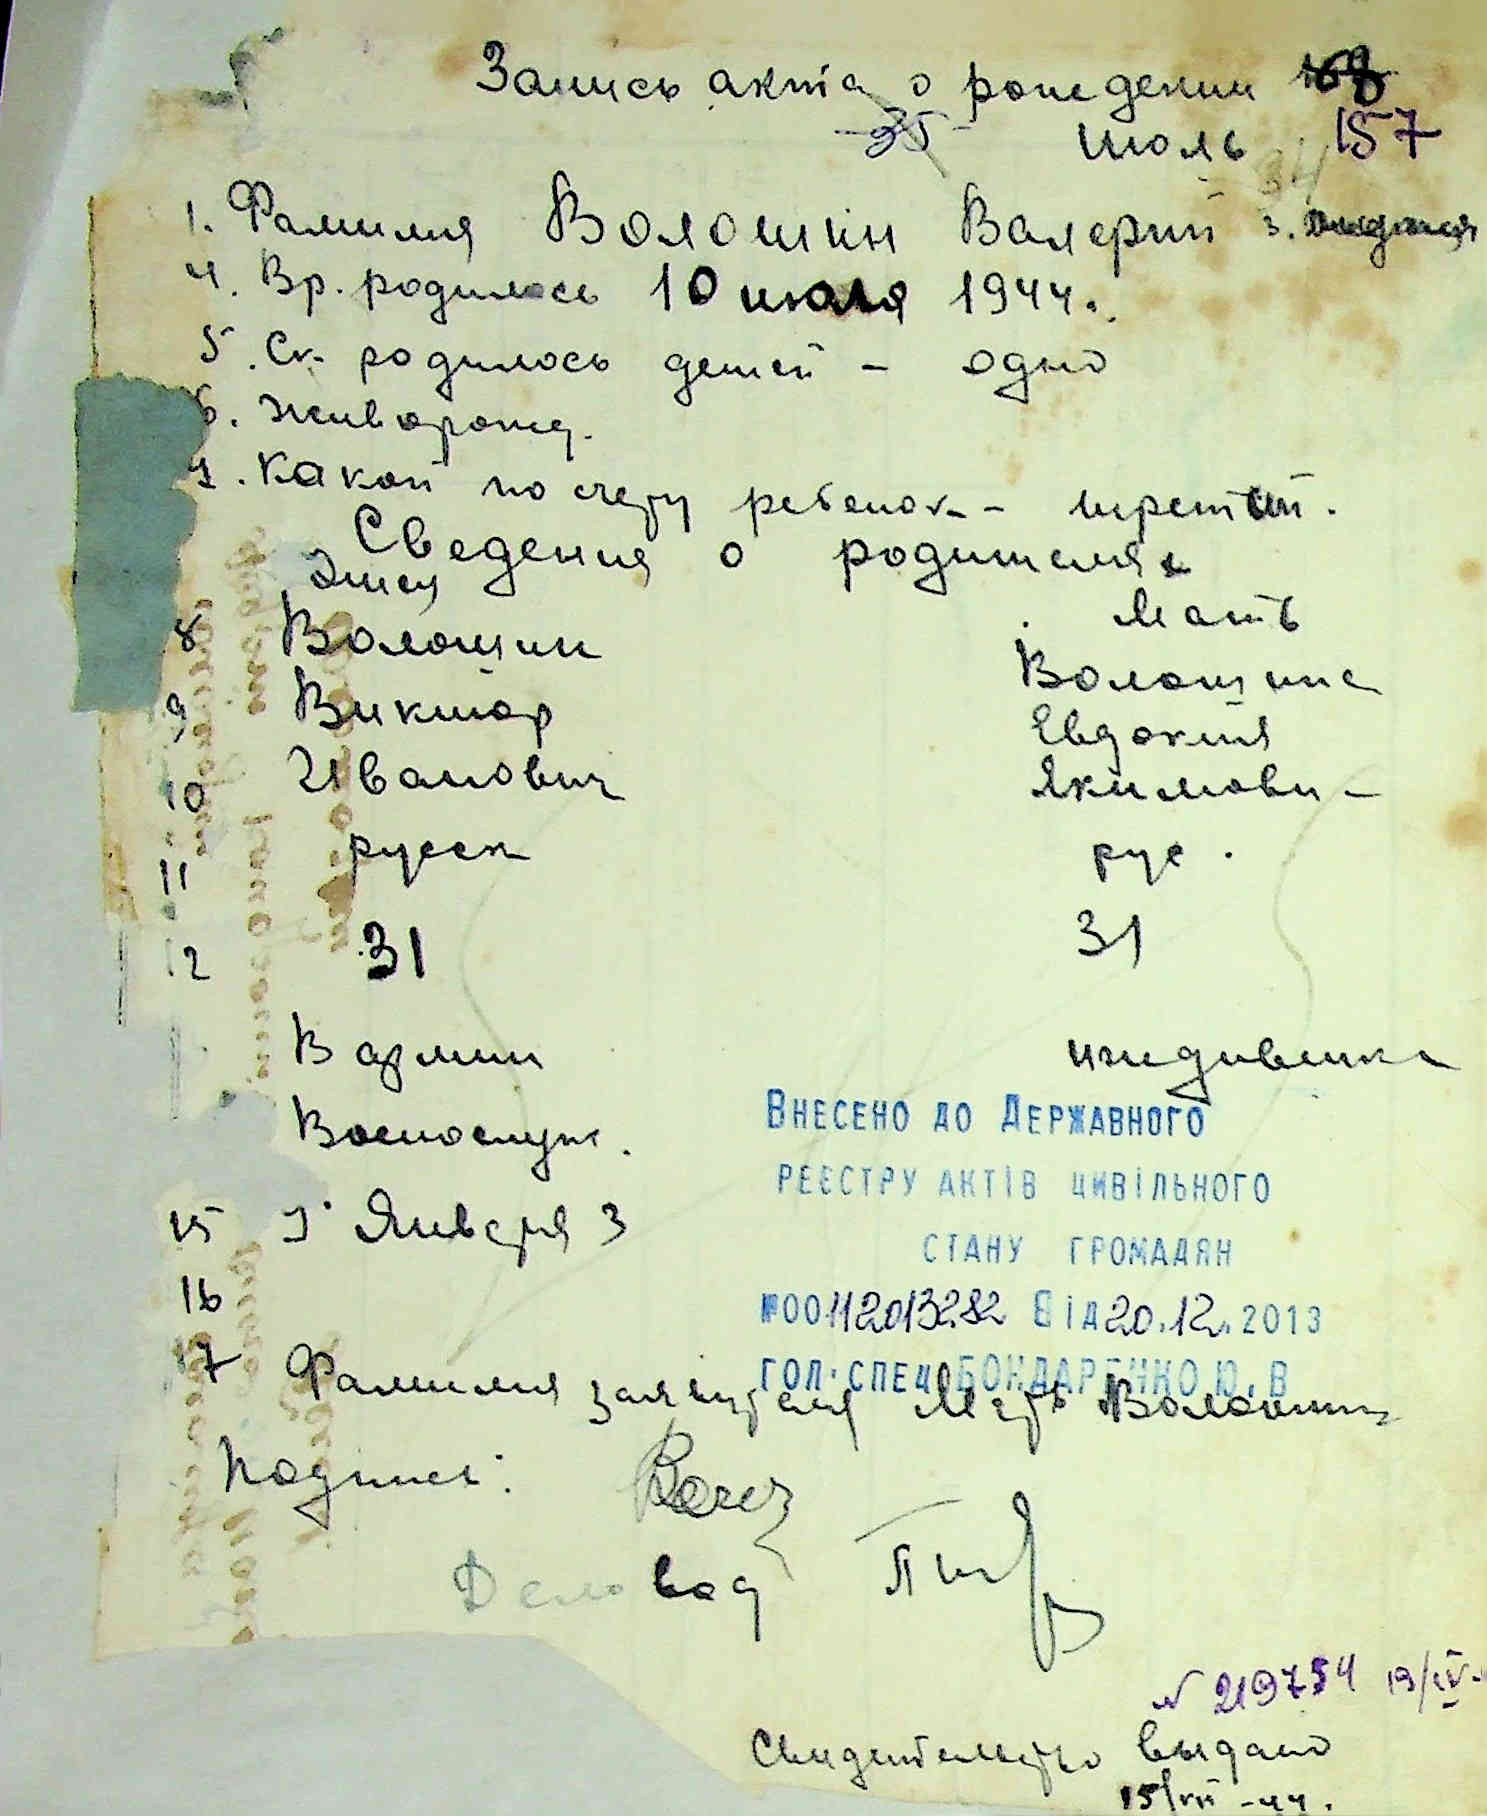 Запись акта о рождении 168
35 июль 157
34
1. Фамилия Волошин Валерий 3.
4. Вр. родилось 10 июля 1944.
5. Ск. родилось детей - одно
6. Живорожд.
7. Какой по счету ребенок - третий.
Сведения о родителях
Отец Мать
8 Волошин Волошина
9 Виктор Евдокия
10 Иванович Якимовн-
11 русск рус.
12 31 31
В армии иждивенка
Военослуж.
15 У Января 3
16
17 Фамилия заявителя Мать Волошин
Подпись:
Деловод
ВНЕСЕНО ДО ДЕРЖАВНОГО
РЕЄСТРУ АКТІВ ЦИВІЛЬНОГО
СТАНУ ГРОМАДЯН
№00112013282 ВІД 20.12.2013
ГОЛ.СПЕЦ БОНДАРЕНКО Ю.В
N 219754 19/IV-
Свидетельство выдано
15/VII-44.